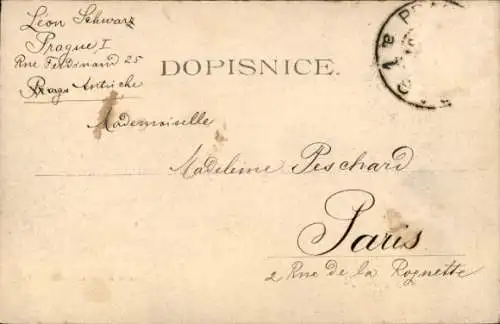 Léon Schwarz
Prague I
Rue Ferdinand 25
Prag Autriche
DOPISNICE.
Mademoiselle
Madeleine Peschard
Paris
2 Rue de la Roquette